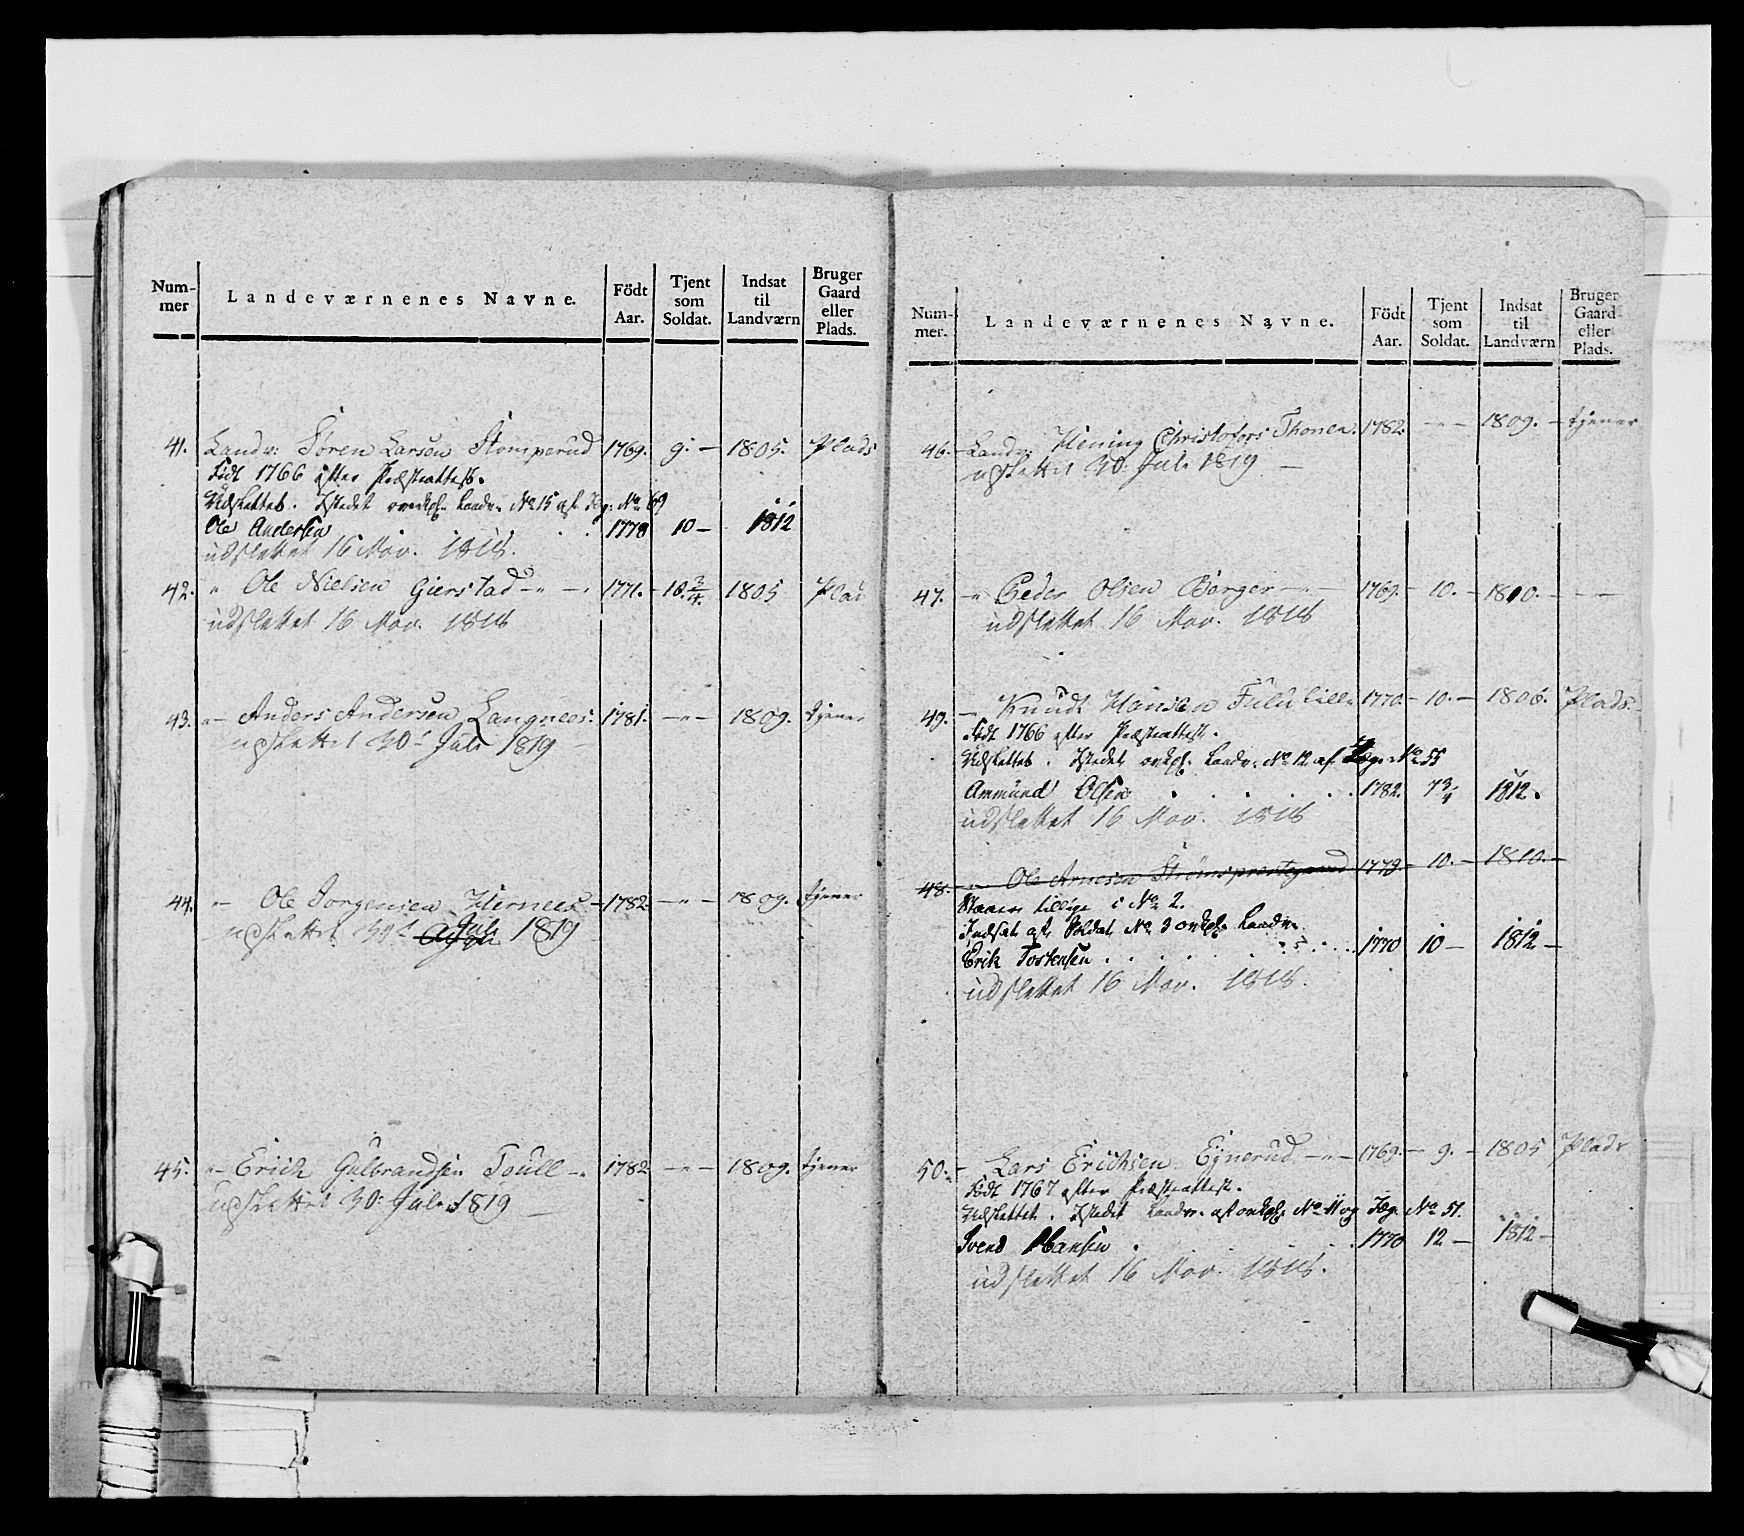 Num-
mer
Landeværnenes Navne.
Födt
Aar.
Tjent
som
Soldat.
Indsat
til
Landværn
Bruger
Gaard
eller
Plads.
41. Landv: Søren Larsen Stomperud 1769. 9. — 1805. Plads
Födt 1766 efter Præsteattest.
Udslettes. Istedet Landv. No 15 af No 69
Ole Andersen . . 1778 10 — 1812
udslettet 16 Nov. 1818.
42. " Ole Nielsen Gierstad -"- 1771. — 10. 3/4. 1805 Plad
udslettet 16 Nov. 1818
43. -"- Anders Andersen Langnees. 1781. —"— 1809. tjener
udslettet 30: Juli 1819 —
44. -"- Ole Jorgensen Hernees — 1782. —"— 1809. tjener
udslettet Juli 1819
45. -"- Erich Gulbrandsen Toull -"- 1782. —"— 1809. tjener
udslettet 30: Juli 1819 —
Num-
mer.
Landeværnenes Navne.
Födt
Aar.
Tjent
som
Soldat.
Indsat
til
Landværn
Bruger
Gaard
eller
Plads.
46. Landv: Hening Christofers Thonen. 1782. —"— 1809. — tjener
udslettet 30: Juli 1819 —
47. -"- Peder Olsen Børger -"- 1769. — 10. — 1810. — — —
udslettet 16 Nov. 1818
49. -"- Knudt Hansen Fulu lille 1770 — 10. — 1806. Plads.
Födt 1766 efter Præsteattest.
Udslettes. Istedet Landv. No 12 af Læg. No 55
Ammund Olsen . . . . . . 1782. 7 3/4 1812.
udslettet 16 Nov. 1818
48. -"- Ole Arnesen Strømsprestegaard 1779. — 10. — 1810. —
Staaer tillige i No 2.
Indsat af Soldat No 3 Landv.
Erik Tostensen . . . . . . 1770 10 — 1812 —
udslettet 16 Nov. 1818.
50. — Lars Erichsen Ejnerud -"- 1769. — 9. — 1805 Plads
Födt 1767 efter Præsteattest.
Udslettet. Istedet Landv. af No 11 og Læg. No 51.
Svend Hansen . . . 1770 12 — 1812 —
udslettet 16 Nov. 1818.